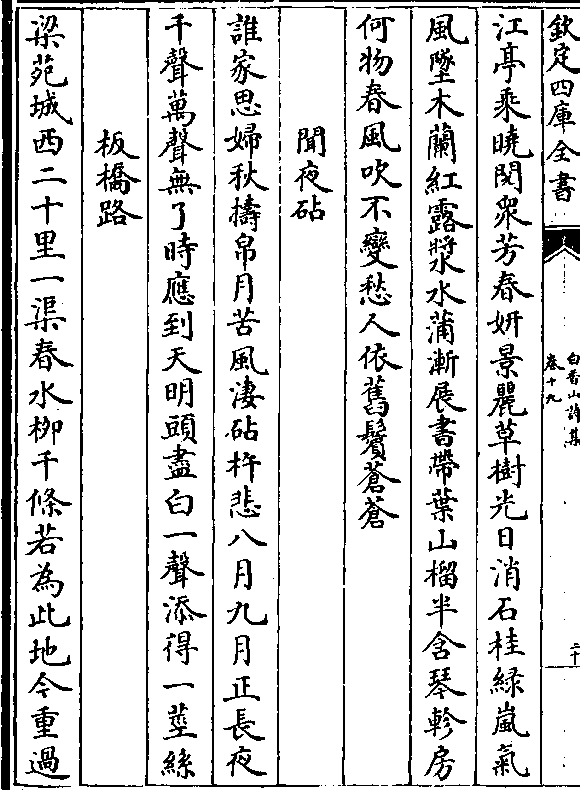 欽定四庫全書
白香山詩集
卷十九
二十
江亭乘曉閱衆芳春妍景麗草樹光日消石桂綠嵐氣
風墜木蘭紅露漿水蒲漸展書帶葉山榴半含琴軫房
何物春風吹不變愁人依舊鬢蒼蒼
聞夜砧
誰家思婦秋擣帛月苦風淒砧杵悲八月九月正長夜
千聲萬聲無了時應到天明頭盡白一聲添得一莖絲
板橋路
梁苑城西二十里一渠春水栁千條若為此地今重過